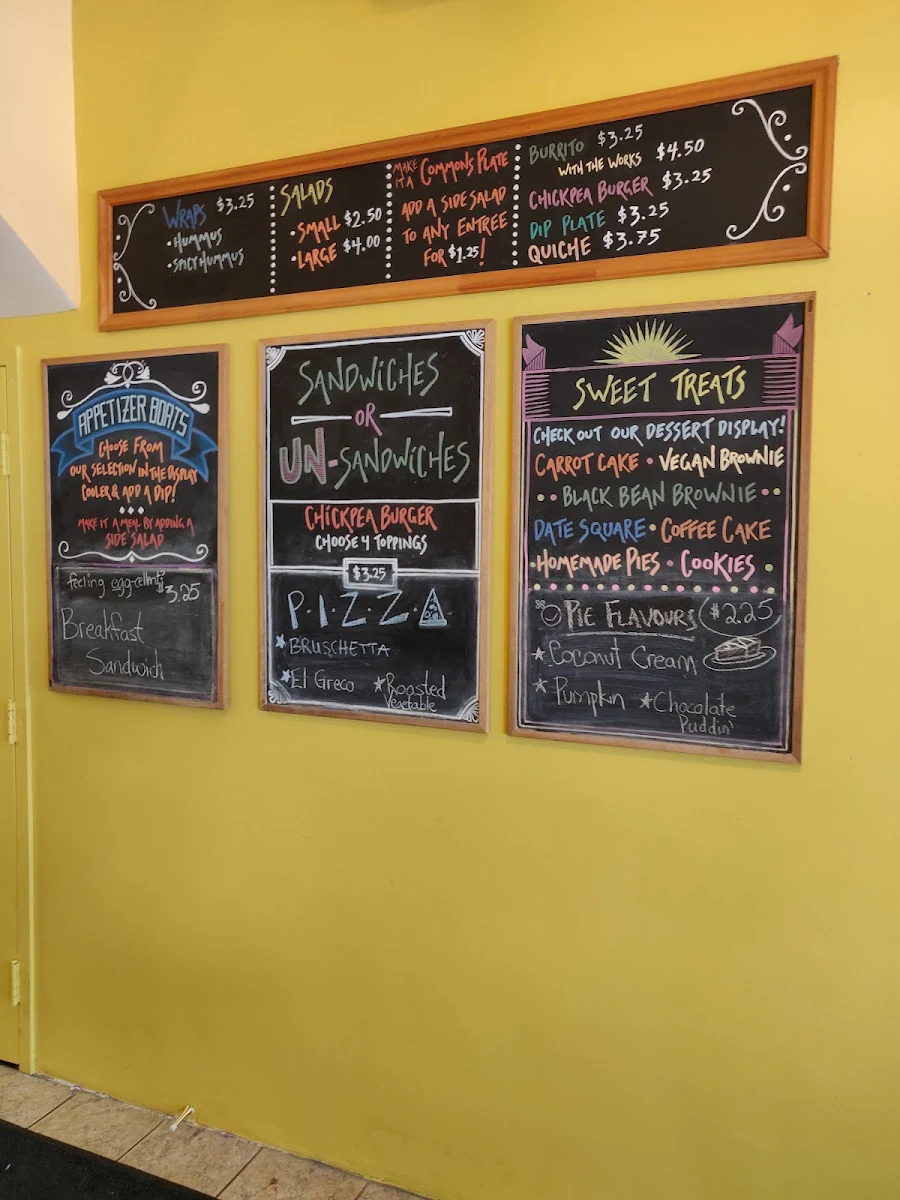 WRAPS $3.25
• HUMMUS
• SPICY HUMMUS
SALADS
• SMALL $2.50
• LARGE $4.00
MAKE IT A COMMONS PLATE
ADD A SIDE SALAD
TO ANY ENTREE
FOR $1.25!
BURRITO $3.25
WITH THE WORKS $4.50
CHICKPEA BURGER $3.25
DIP PLATE $3.25
QUICHE $3.75
APPETIZER BOATS
CHOOSE FROM
OUR SELECTION IN THE DISPLAY
COOLER & ADD A DIP!
MAKE IT A MEAL BY ADDING A
SIDE SALAD
feeling egg-cellent?
3.25
Breakfast
Sandwich
SANDWICHES
OR
UN-SANDWICHES
CHICKPEA BURGER
CHOOSE 4 TOPPINGS
$3.25
P·I·Z·Z·A
BRUSCHETTA
El Greco
Roasted
Vegetable
SWEET TREATS
CHECK OUT OUR DESSERT DISPLAY!
CARROT CAKE • VEGAN BROWNIE
•• BLACK BEAN BROWNIE ••
DATE SQUARE • COFFEE CAKE
• HOMEMADE PIES • COOKIES •
PIE FLAVOURS $2.25
Coconut Cream
Pumpkin
Chocolate
Puddin'